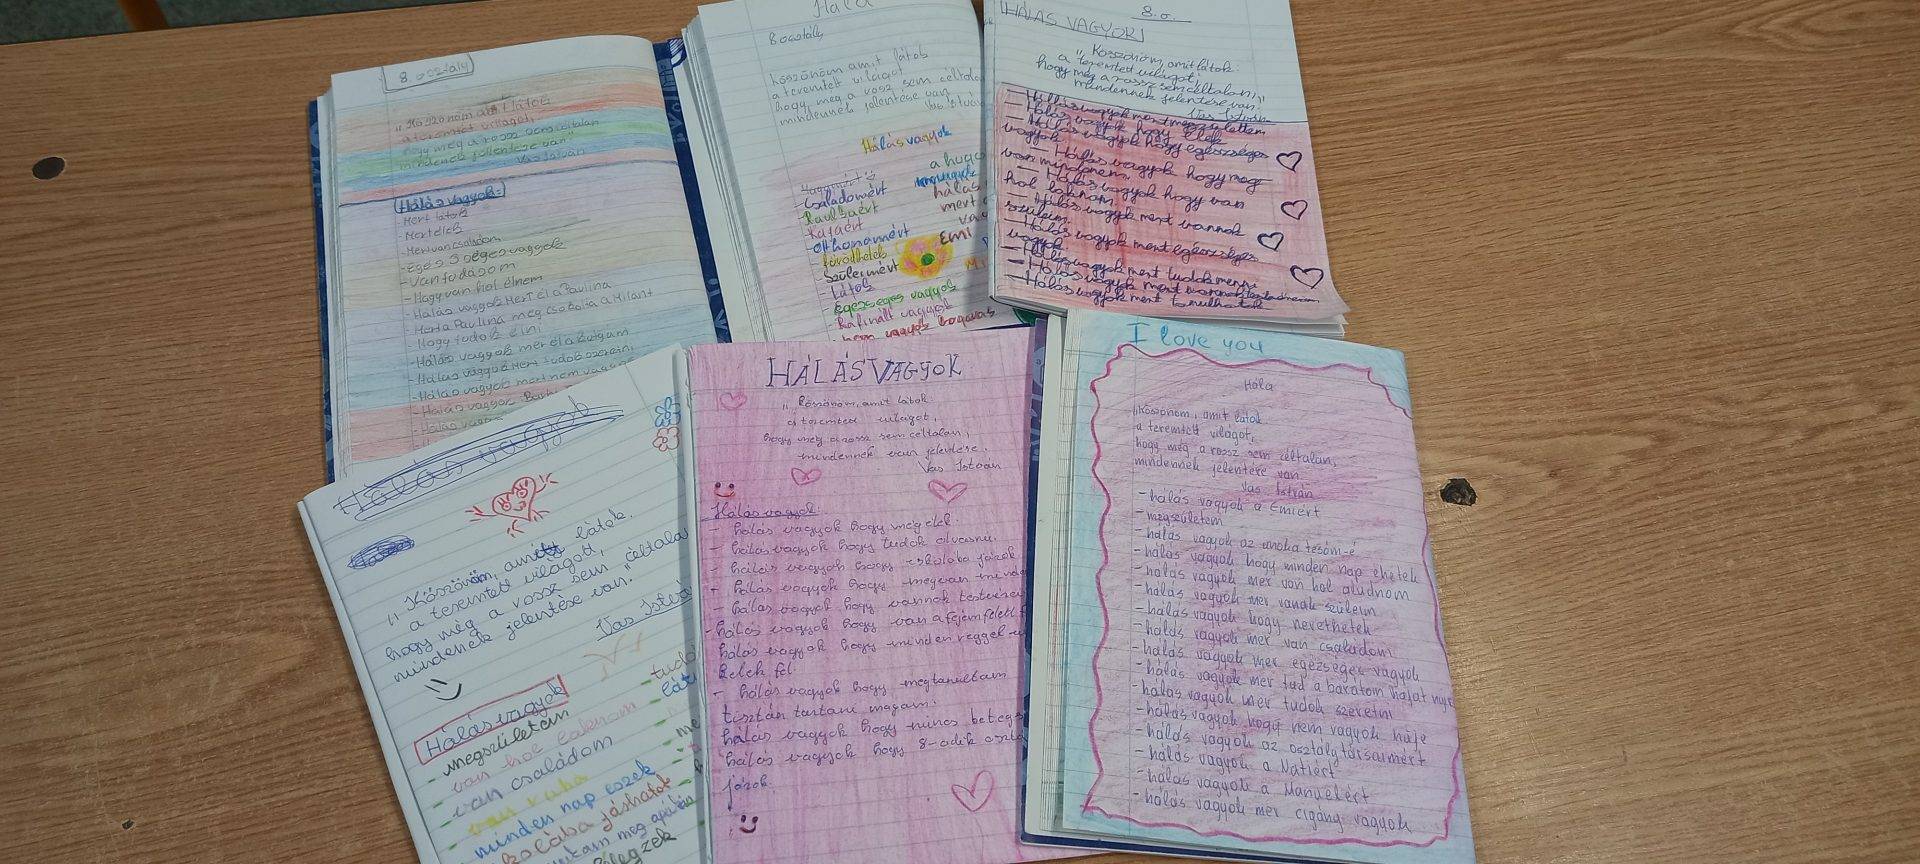 8. osztály
Látok
a teremtet világot,
hogy még a rossz sem céltalan
mindenek jellentése van"
Vas István
Hálás vagyok:
- Mert látok
- Mert élek
- Mert van családom
- Egés s séges vagyok
- Van tudásom
- Hogy van hol élnem
- Hálás vagyok Mert él a Paulina
- Mert a Paulina meg csobolja a Milánt
- Hogy tudok élni
- Hálás vagyok mer él a kutyám
- Hálás vagyok Mert tudok szeretni
- Hálás vagyok mert nem vagyok
- Hálás vagyok
- Hálás vagyok
Hála
8 osztály
Köszönöm amit látok
a teremtett világot
hogy még a rossz sem céltala
mindennek jelentése van
Vas István
Hálás vagyok
- Családomért
- Raulkaért
- Katáért
- Otthonamért
fürödhetek
- Szüleimért
- Látok
- egészséges vagyok
- Rafinált vagyok
- nem vagyok
a hugo
hálás
mert
va
Emi
HÁLÁS VAGYOK
8. o.
„Köszönöm, amit látok:
a teremtett világot,
hogy még a rossz sem céltalan,
mindennek jelentése van."
Vas István
- Hálás vagyok mert megszülettem
- Hálás vagyok hogy élek
- Hálás vagyok hogy egészséges
vagyok
- Hálás vagyok hogy meg
van mindenem.
- Hálás vagyok hogy van
hol laknom.
- Hálás vagyok mert vannak
szüleim.
- Hálás vagyok mert egészséges
vagyok.
- Hálás vagyok mert tudok menni
- Hálás vagyok mert vannak
- Hálás vagyok mert tanulhatok
Hálás vagyok
„Köszönöm, amit látok.
a teremtett világott,
hogy még a rossz sem céltala
mindenek jelentése van."
Vas István
Hálás vagyok
- megszülettem
- van hol laknom
- van családom
- van ruha
- minden nap eszek
- iskolába járhatok
tudo
lát
HÁLÁS VAGYOK
„Köszönöm, amit látok:
a teremtett világot,
hogy még a rossz sem céltalan,
mindennek van jelentése.
Vas István
Hálás vagyok:
- hálás vagyok hogy még élek.
- hálás vagyok hogy tudok olvasni.
- hálás vagyok hogy iskolába járok
- hálás vagyok hogy megvan
- hálás vagyok hogy vannak testvérei
- hálás vagyok hogy van a fejem felett
hálás vagyok hogy minden reggel
kelek fel.
- hálás vagyok hogy megtanultam
tisztán tartani magam.
hálás vagyok hogy nincs betegs
hálás vagyok hogy 8-adik oszta
járok.
I love you
Hála
„Köszönöm, amit látok
a teremtett világot,
hogy még a rossz sem céltalan,
mindennek jelentése van.
Vas István
- hálás vagyok a Emiért
- megszületem
- hálás vagyok az unoka tesóm-é
- hálás vagyok hogy minden nap ehetek
- hálás vagyok mer van hol aludnom
- hálás vagyok mer vanak szüleim
- hálás vagyok hogy nevethetek
- hálás vagyok mer van családom
- hálás vagyok mer egézséges vagyok
- hálás vagyok mer tud a barátom hajat nyír
- hálás vagyok mer tudok szeretni
- hálás vagyok hogy nem vagyok hájé
- hálás vagyok az osztálytársaimért
- hálás vagyok a Natiért
- hálás vagyok a Manuelért
- hálás vagyok mer cigány vagyok